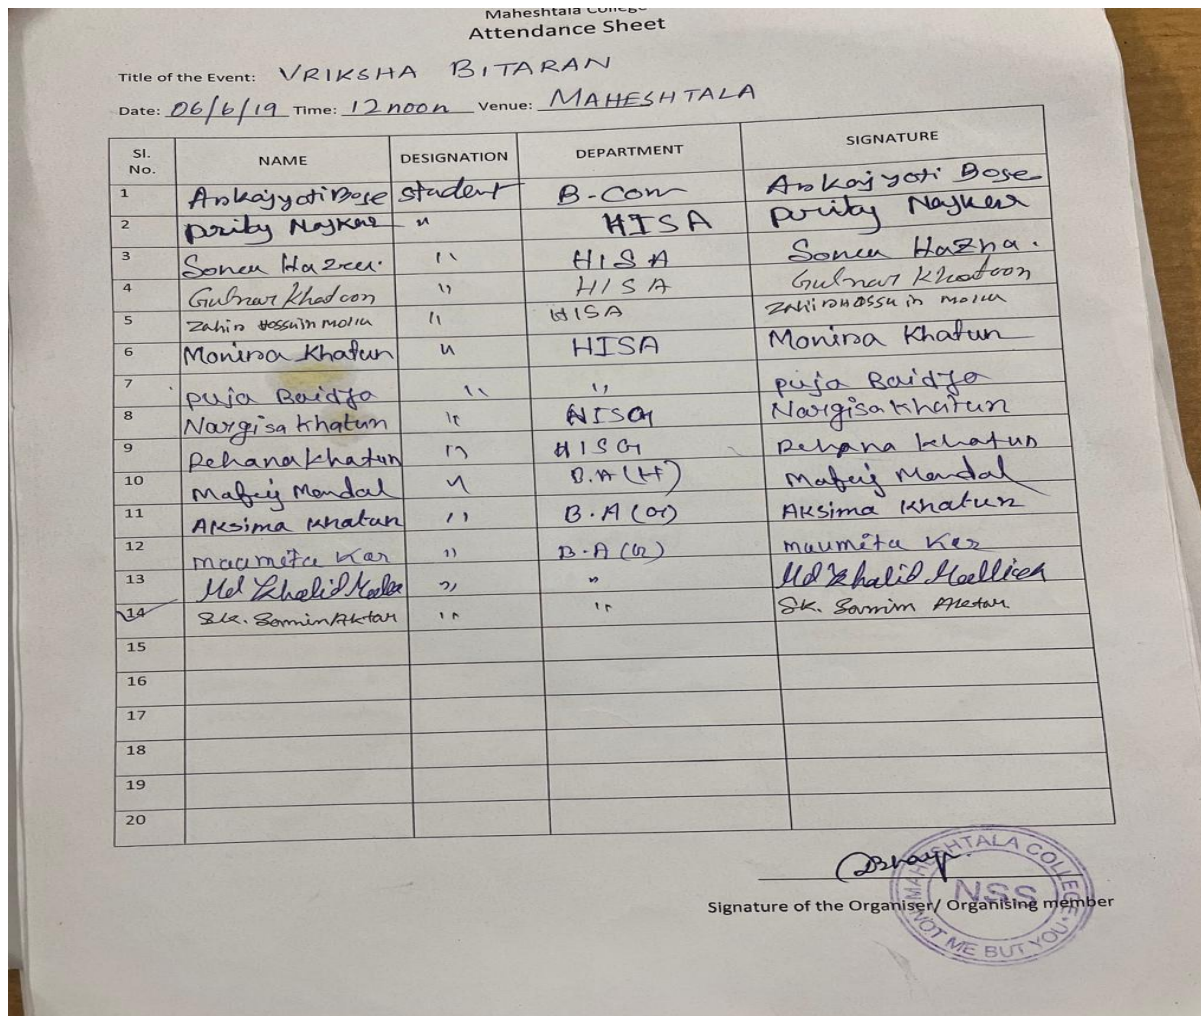 Maheshtala College
Attendance Sheet
Title of the Event: VRIKSHA BITARAN
Date: 06/6/19 Time: 12 noon Venue: MAHESHTALA
Sl. No. NAME DESIGNATION DEPARTMENT SIGNATURE
1 Arkajyoti Bose student B-Com Arkajyoti Bose
2 Prity Naskar " HISA Prity Naskar
3 Sonia Hazra. " HISA Sonia Hazra.
4 Gulnar Khatoon " HISA Gulnar Khatoon
5 Zahir Hossain Molla " HISA Zahir Hossain Molla
6 Monira Khatun " HISA Monira Khatun
7 Puja Baidya " " Puja Baidya
8 Nargisa Khatun " HISG Nargisa Khatun
9 Rehana Khatun " HISG Rehana Khatun
10 Mondal " B.A (H) Mondal
11 Aksima Khatun " B.A (G) Aksima Khatun
12 Maumita Kar " B.A (G) Maumita Kar
13 Md Khalid " " Md Khalid Mallick
14 Sk. Samim Aktar " " Sk. Samim Aktar
15
16
17
18
19
20
Signature of the Organiser/ Organising member
MAHESHTALA COLLEGE
NSS
NOT ME BUT YOU